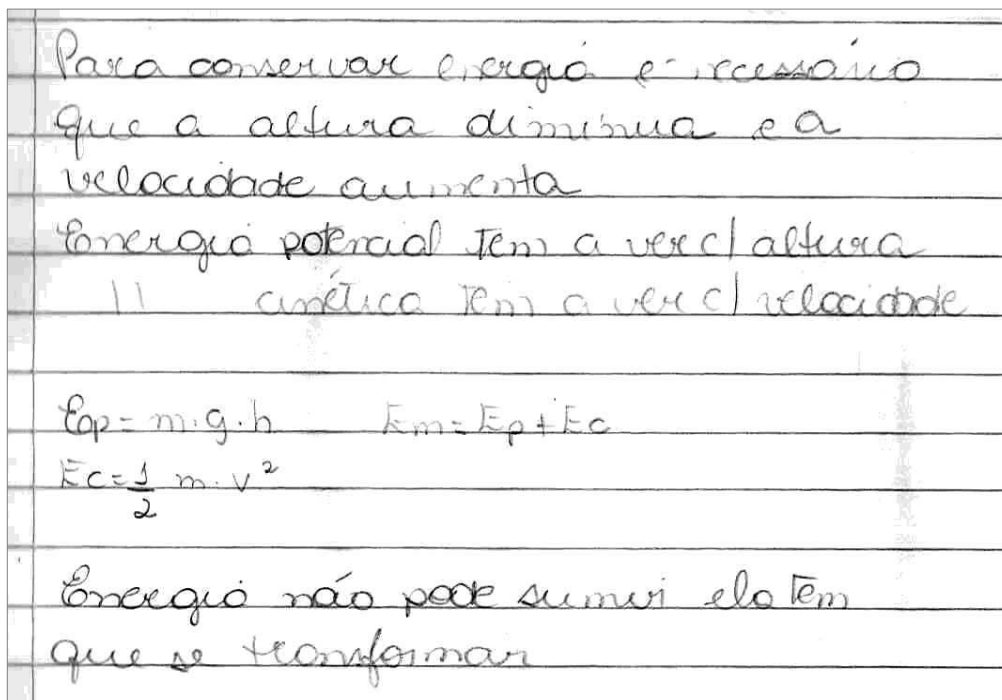 Para conservar energia é necessário
que a altura diminua e a
velocidade aumenta
Energia potencial tem a ver c/ altura
11 cinética tem a ver c/ velocidade
Ep = m.g.h Em = Ep + Ec
Ec = 1/2 m.v²
Energia não pode sumir ela tem
que se transformar